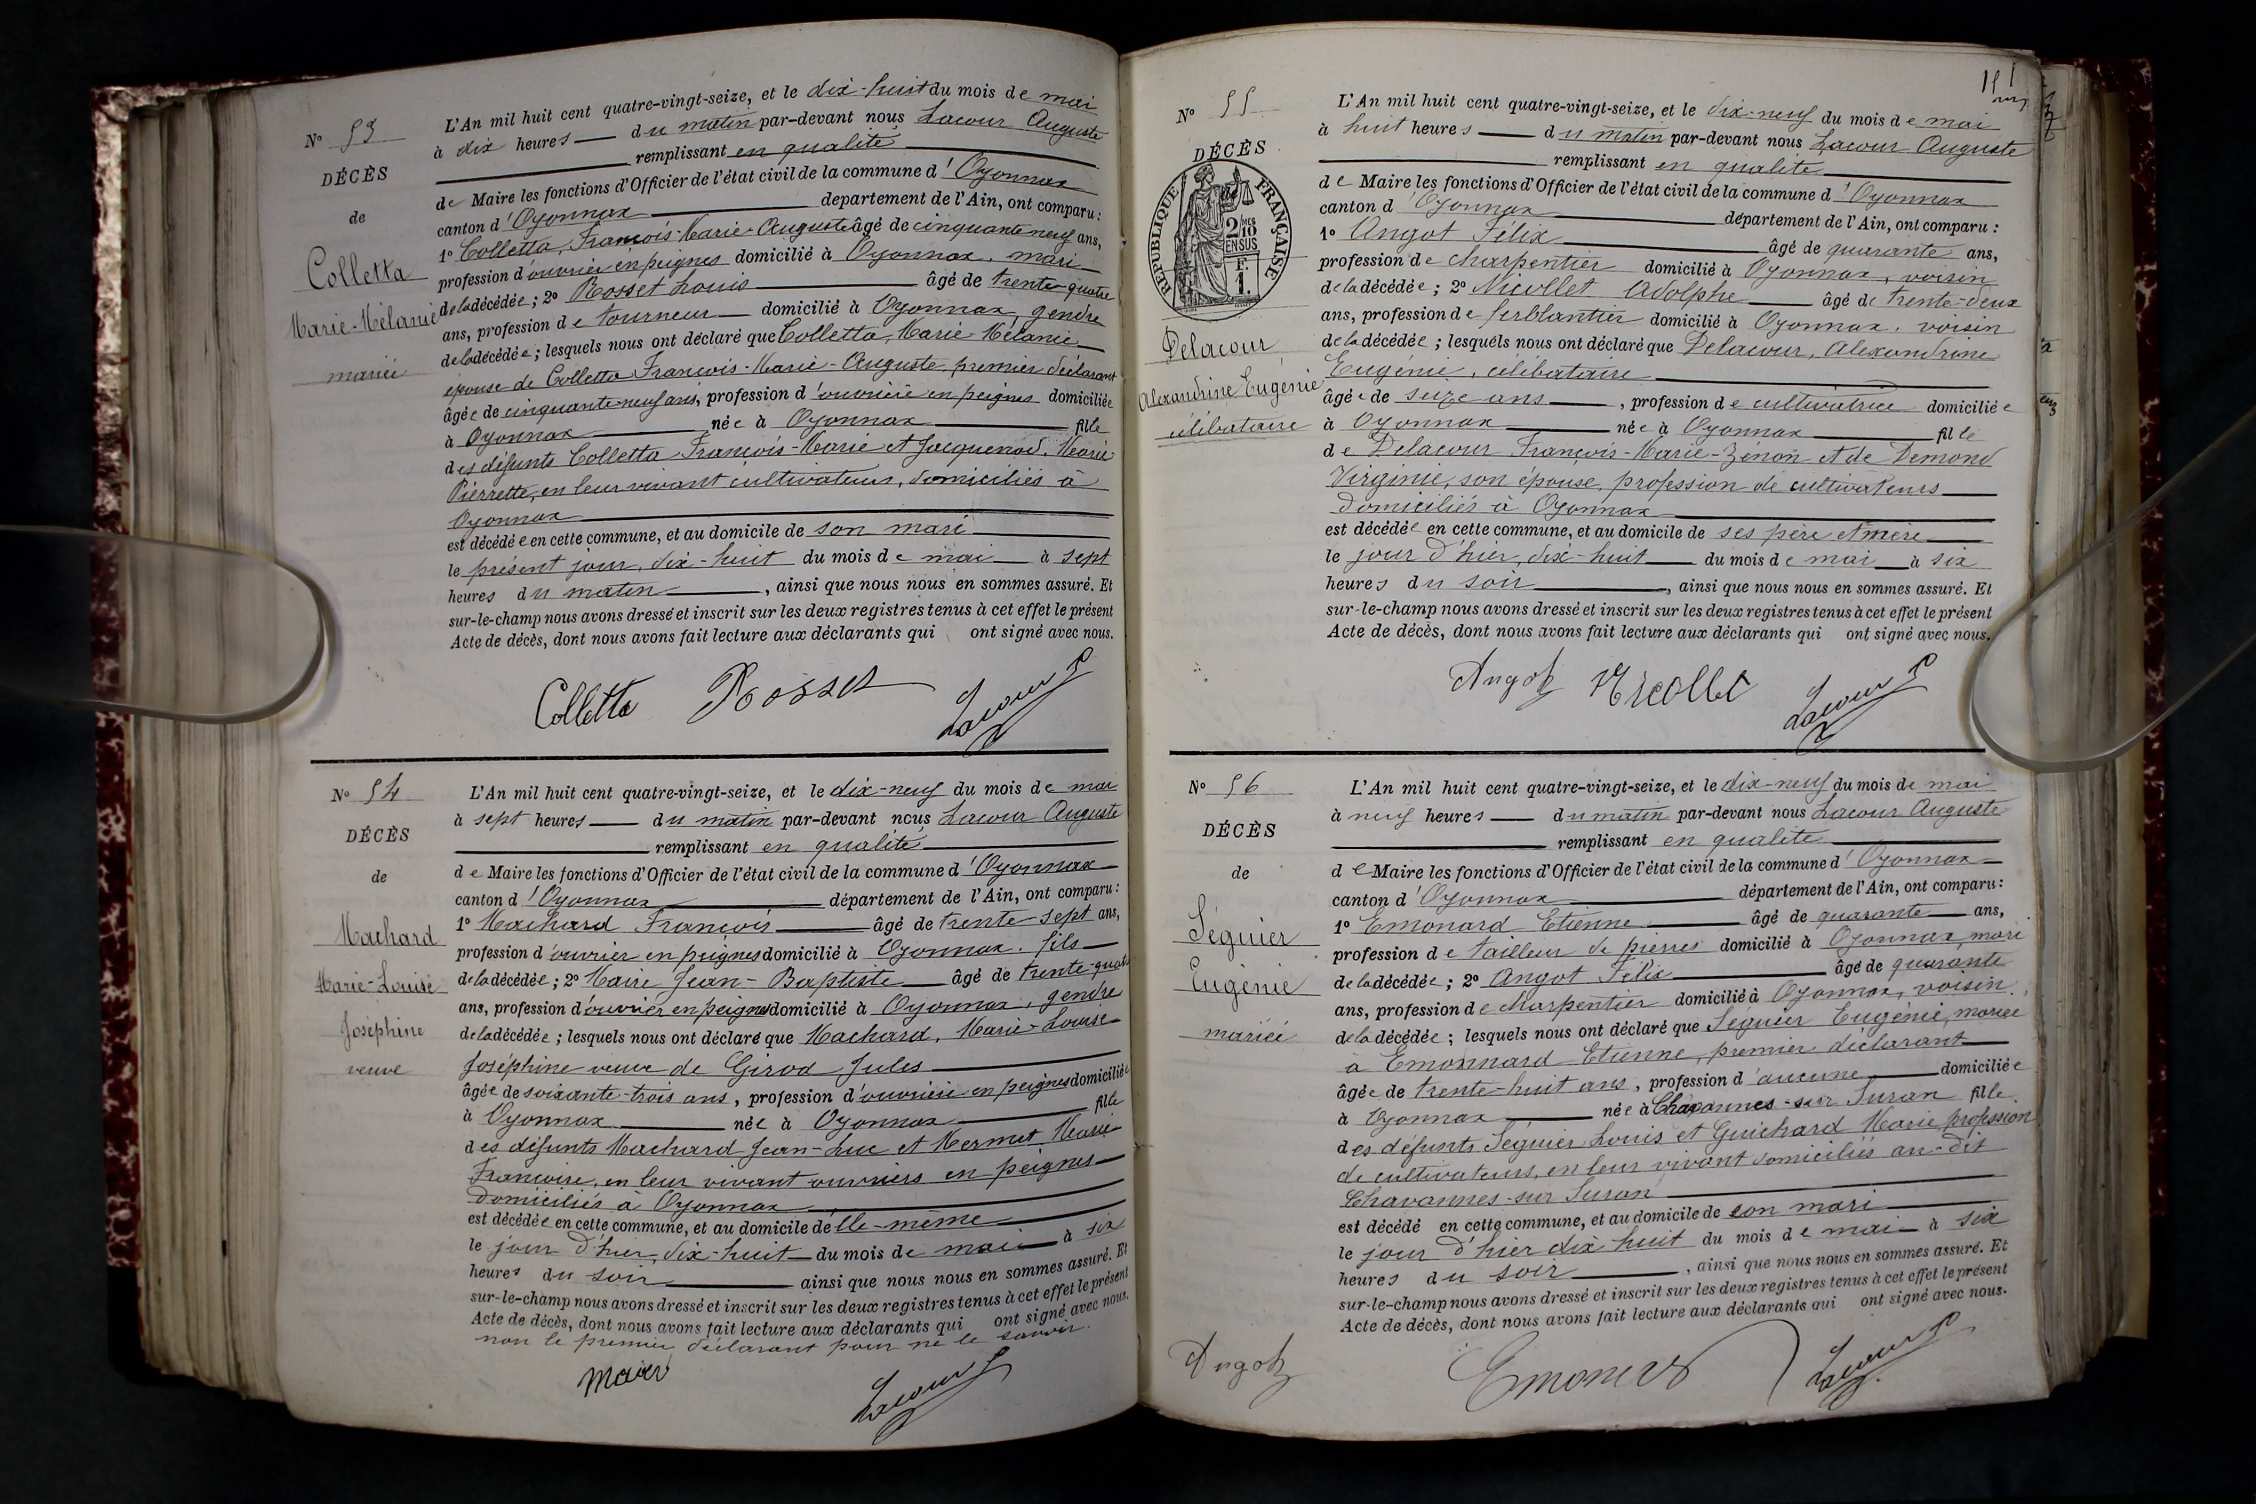 N° 53
DÉCÈS
de
Colletta
Marie-Mélanie
mariée
L'An mil huit cent quatre-vingt-seize, et le dix-huit du mois de mai
à dix heures du matin par-devant nous Lacour Auguste
remplissant en qualité
de Maire les fonctions d'Officier de l'état civil de la commune d'Oyonnax
canton d'Oyonnax département de l'Ain, ont comparu :
1° Colletta, François-Marie-Auguste âgé de cinquante neuf ans,
profession d'ouvrier en peignes domicilié à Oyonnax, mari
de la décédée ; 2° Rosset Louis âgé de trente-quatre
ans, profession de tourneur domicilié à Oyonnax, gendre
de la décédée ; lesquels nous ont déclaré que Colletta, Marie-Mélanie
épouse de Colletta François-Marie-Auguste, premier déclarant
âgée de cinquante neuf ans, profession d'ouvrière en peignes domiciliée
à Oyonnax née à Oyonnax fille
des défunts Colletta François-Marie et Jacquenod, Marie
Pierrette, en leur vivant cultivateurs, domiciliés à
Oyonnax
est décédée en cette commune, et au domicile de son mari
le présent jour, dix-huit du mois de mai à sept
heures du matin, ainsi que nous nous en sommes assuré. Et
sur-le-champ nous avons dressé et inscrit sur les deux registres tenus à cet effet le présent
Acte de décès, dont nous avons fait lecture aux déclarants qui ont signé avec nous.
Colletta Rosset Lacour
N° 54
DÉCÈS
de
Machard
Marie-Louise
Joséphine
veuve
L'An mil huit cent quatre-vingt-seize, et le dix-neuf du mois de mai
à sept heures du matin par-devant nous Lacour Auguste
remplissant en qualité
de Maire les fonctions d'Officier de l'état civil de la commune d'Oyonnax
canton d'Oyonnax département de l'Ain, ont comparu :
1° Machard François âgé de trente-sept ans,
profession d'ouvrier en peignes domicilié à Oyonnax, fils
de la décédée ; 2° Maire Jean-Baptiste âgé de trente-quatre
ans, profession d'ouvrier en peignes domicilié à Oyonnax, gendre
de la décédée ; lesquels nous ont déclaré que Machard, Marie-Louise
Joséphine veuve de Girod Jules
âgée de soixante-trois ans, profession d'ouvrière en peignes domiciliée
à Oyonnax née à Oyonnax fille
des défunts Machard Jean-Luc et Mermet Marie
Françoise, en leur vivant ouvriers en peignes
domiciliés à Oyonnax
est décédée en cette commune, et au domicile d'elle-même
le jour d'hier, dix-huit du mois de mai à six
heures du soir ainsi que nous nous en sommes assuré. Et
sur-le-champ nous avons dressé et inscrit sur les deux registres tenus à cet effet le présent
Acte de décès, dont nous avons fait lecture aux déclarants qui ont signé avec nous.
non le premier déclarant pour ne le savoir.
Maire Lacour
N° 55
DÉCÈS
RÉPUBLIQUE FRANÇAISE
2/10 EN SUS
F.
1.
Delacour
Alexandrine Eugénie
célibataire
L'An mil huit cent quatre-vingt-seize, et le dix-neuf du mois de mai
à huit heures du matin par-devant nous Lacour Auguste
remplissant en qualité
de Maire les fonctions d'Officier de l'état civil de la commune d'Oyonnax
canton d'Oyonnax département de l'Ain, ont comparu :
1° Angot Félix âgé de quarante ans,
profession de charpentier domicilié à Oyonnax, voisin
de la décédée ; 2° Nicollet Adolphe âgé de trente-deux
ans, profession de ferblantier domicilié à Oyonnax, voisin
de la décédée ; lesquels nous ont déclaré que Delacour, Alexandrine
Eugénie, célibataire
âgée de seize ans, profession de cultivatrice domiciliée
à Oyonnax née à Oyonnax fille
de Delacour François-Marie-Zénon et de Demond
Virginie, son épouse, profession de cultivateurs
domiciliés à Oyonnax
est décédée en cette commune, et au domicile de ses père et mère
le jour d'hier, dix-huit du mois de mai à six
heures du soir, ainsi que nous nous en sommes assuré. Et
sur-le-champ nous avons dressé et inscrit sur les deux registres tenus à cet effet le présent
Acte de décès, dont nous avons fait lecture aux déclarants qui ont signé avec nous.
Angot Nicollet Lacour
N° 56
DÉCÈS
de
Séguier
Eugénie
mariée
L'An mil huit cent quatre-vingt-seize, et le dix-neuf du mois de mai
à neuf heures du matin par-devant nous Lacour Auguste
remplissant en qualité
de Maire les fonctions d'Officier de l'état civil de la commune d'Oyonnax
canton d'Oyonnax département de l'Ain, ont comparu :
1° Emonard Etienne âgé de quarante ans,
profession de tailleur de pierres domicilié à Oyonnax, mari
de la décédée ; 2° Angot Félix âgé de quarante
ans, profession de charpentier domicilié à Oyonnax, voisin
de la décédée ; lesquels nous ont déclaré que Séguier Eugénie, mariée
à Emonnard Etienne, premier déclarant
âgée de trente-huit ans, profession d'aucune domiciliée
à Oyonnax née à Chavannes-sur Suran fille
des défunts Séguier Louis et Guichard Marie, profession
de cultivateurs, en leur vivant domiciliés au-dit
Chavannes-sur Suran
est décédé en cette commune, et au domicile de son mari
le jour d'hier dix-huit du mois de mai à six
heures du soir, ainsi que nous nous en sommes assuré. Et
sur-le-champ nous avons dressé et inscrit sur les deux registres tenus à cet effet le présent
Acte de décès, dont nous avons fait lecture aux déclarants qui ont signé avec nous.
Angot Lacour